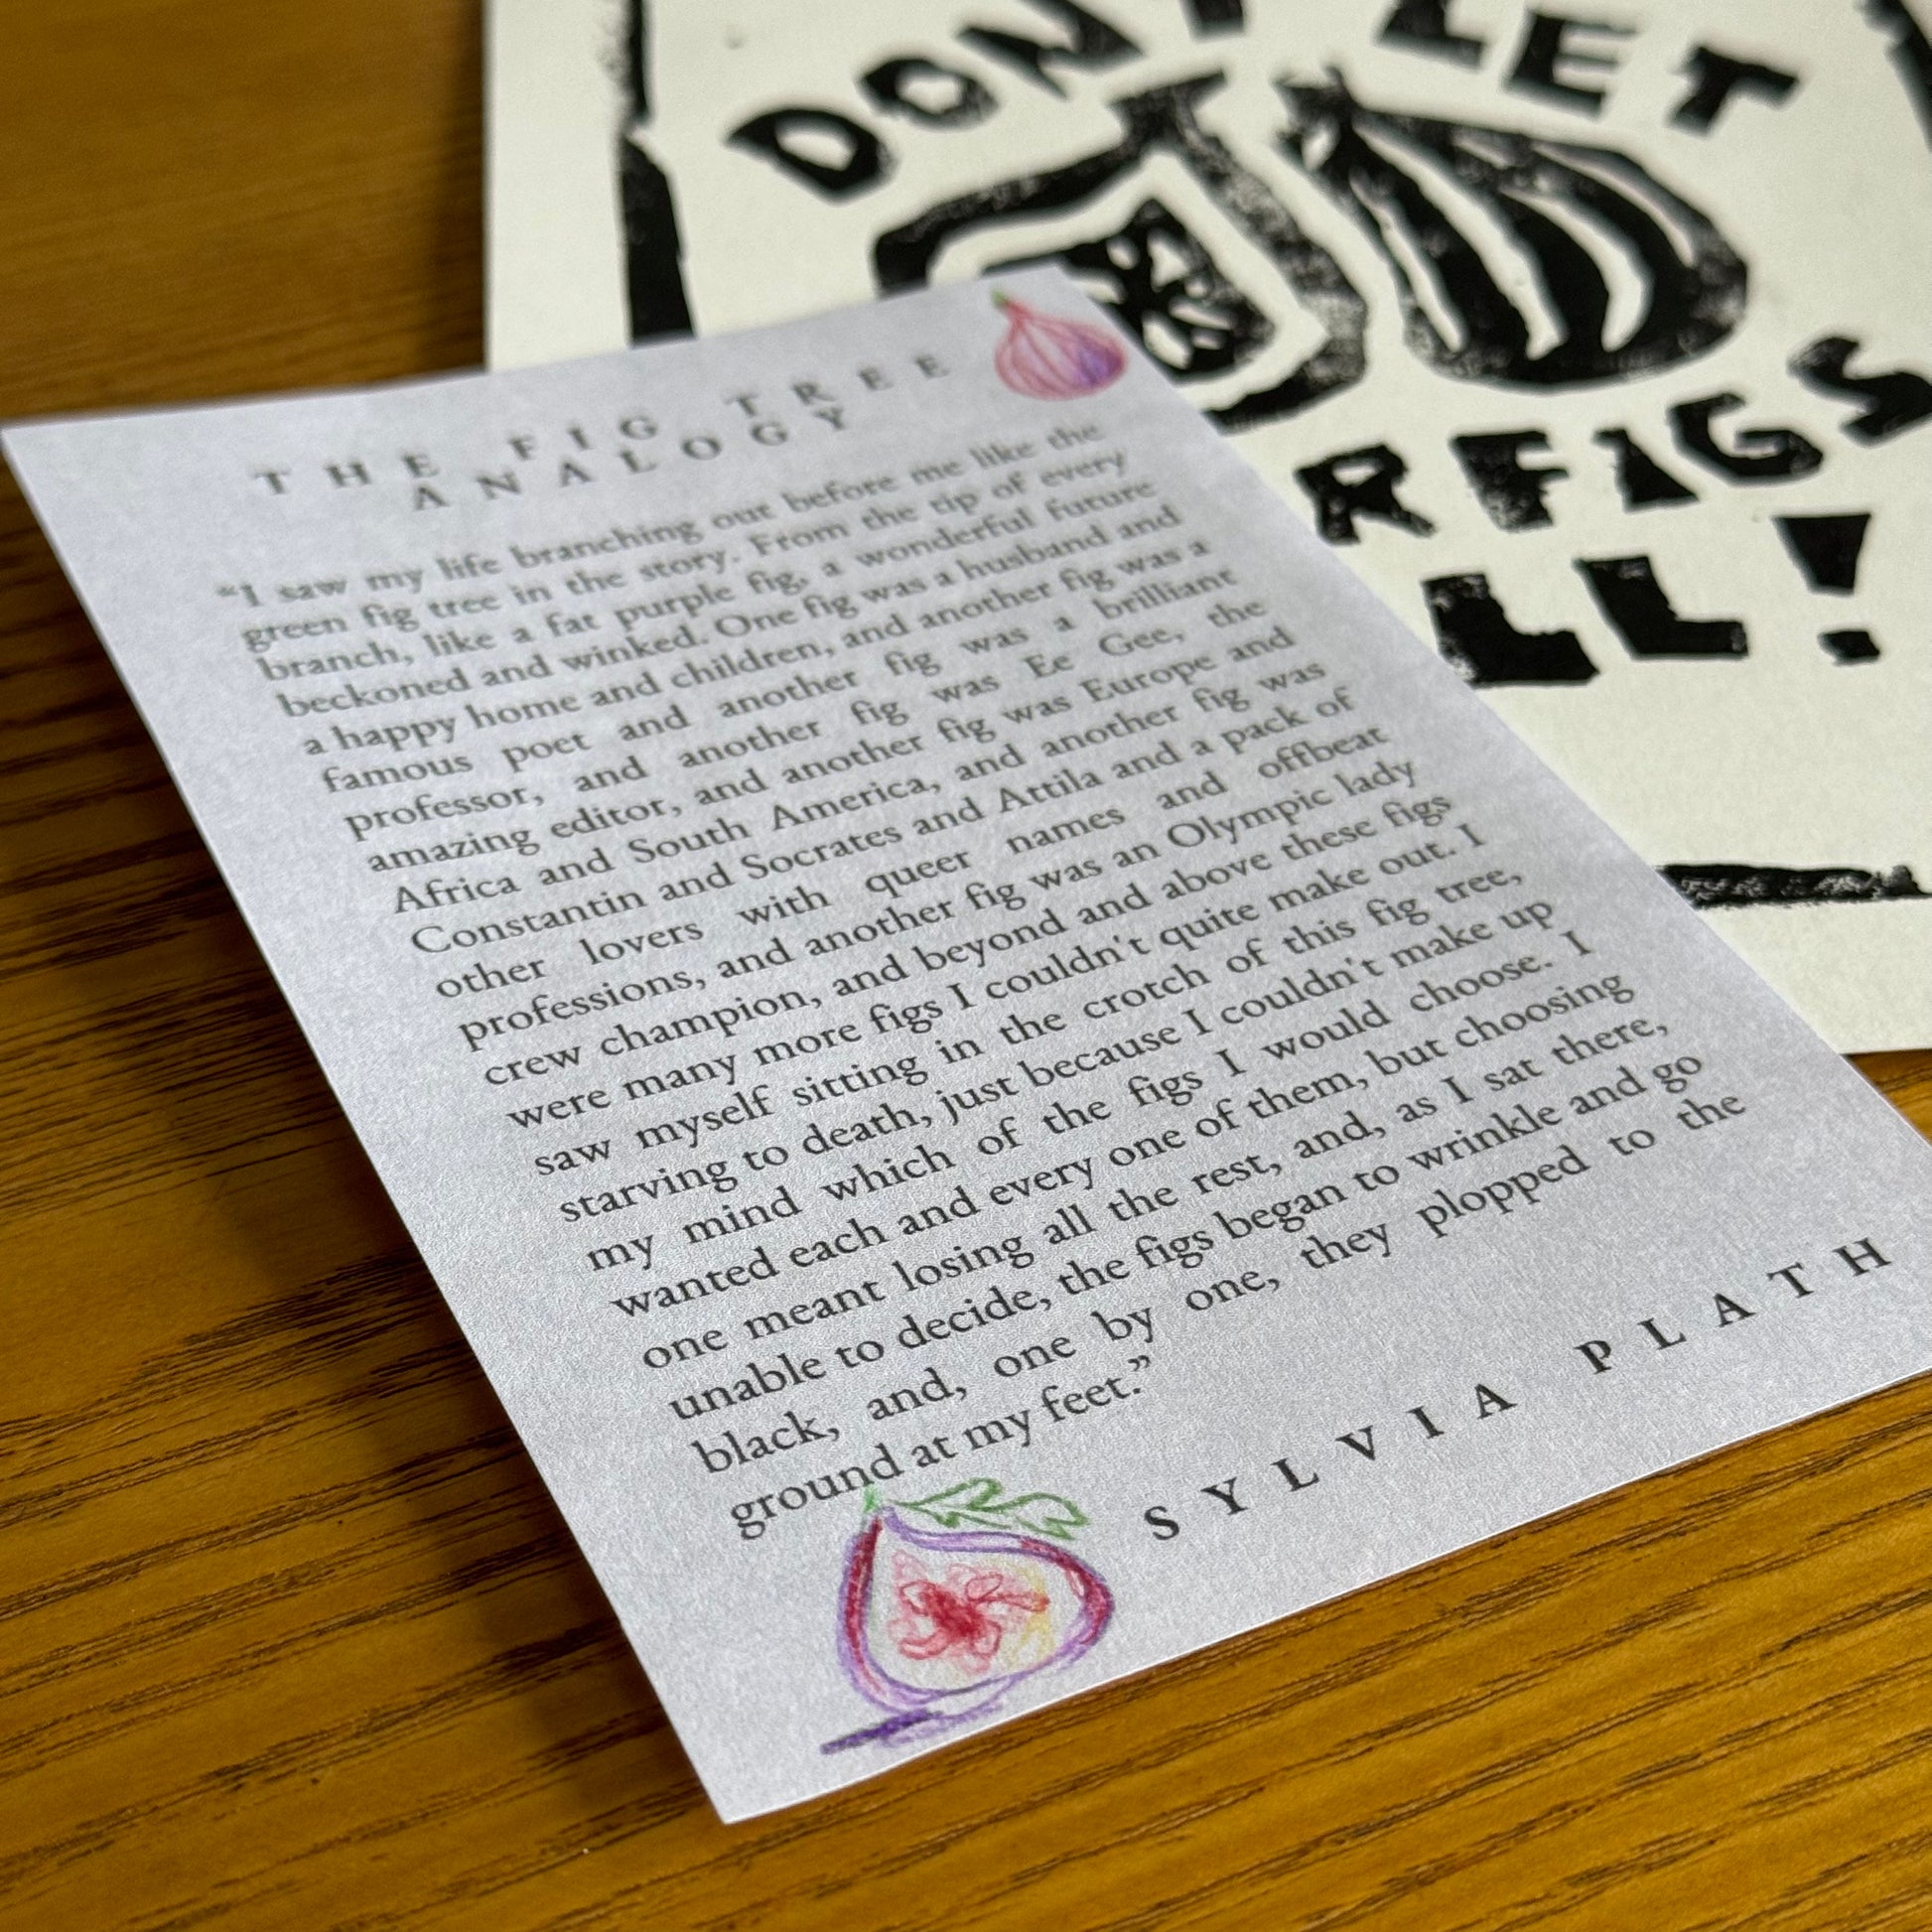 DON'T LET
R FIGS
LL!
THE FIG TREE
ANALOGY
“I saw my life branching out before me like the
green fig tree in the story. From the tip of every
branch, like a fat purple fig, a wonderful future
beckoned and winked. One fig was a husband and
a happy home and children, and another fig was a
famous poet and another fig was a brilliant
professor, and another fig was Ee Gee, the
amazing editor, and another fig was Europe and
Africa and South America, and another fig was
Constantin and Socrates and Attila and a pack of
other lovers with queer names and offbeat
professions, and another fig was an Olympic lady
crew champion, and beyond and above these figs
were many more figs I couldn't quite make out. I
saw myself sitting in the crotch of this fig tree,
starving to death, just because I couldn't make up
my mind which of the figs I would choose. I
wanted each and every one of them, but choosing
one meant losing all the rest, and, as I sat there,
unable to decide, the figs began to wrinkle and go
black, and, one by one, they plopped to the
ground at my feet.”
SYLVIA PLATH